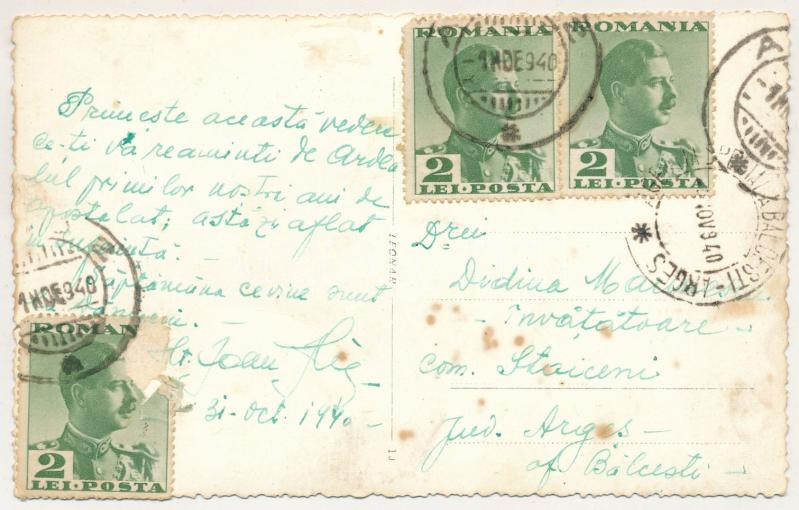 Primește această vedere
ce-ți va reaminti de Ardea
lul primilor noștri ani de
apostolat; astăzi aflat
în
săptămâna ce vine sunt
Ioan
31-Oct. 1940-
ROMANIA
2
LEI·POSTA
ROMANIA
2
LEI·POSTA
ROMANIA
2
LEI·POSTA
-1NOE940
1NOE940
NOV940
BALCESTI-ARGES
LEONAR
Drei
Didina
- învățătoare -
com. Staiceni
Jud. Argeș -
of Bălcești -